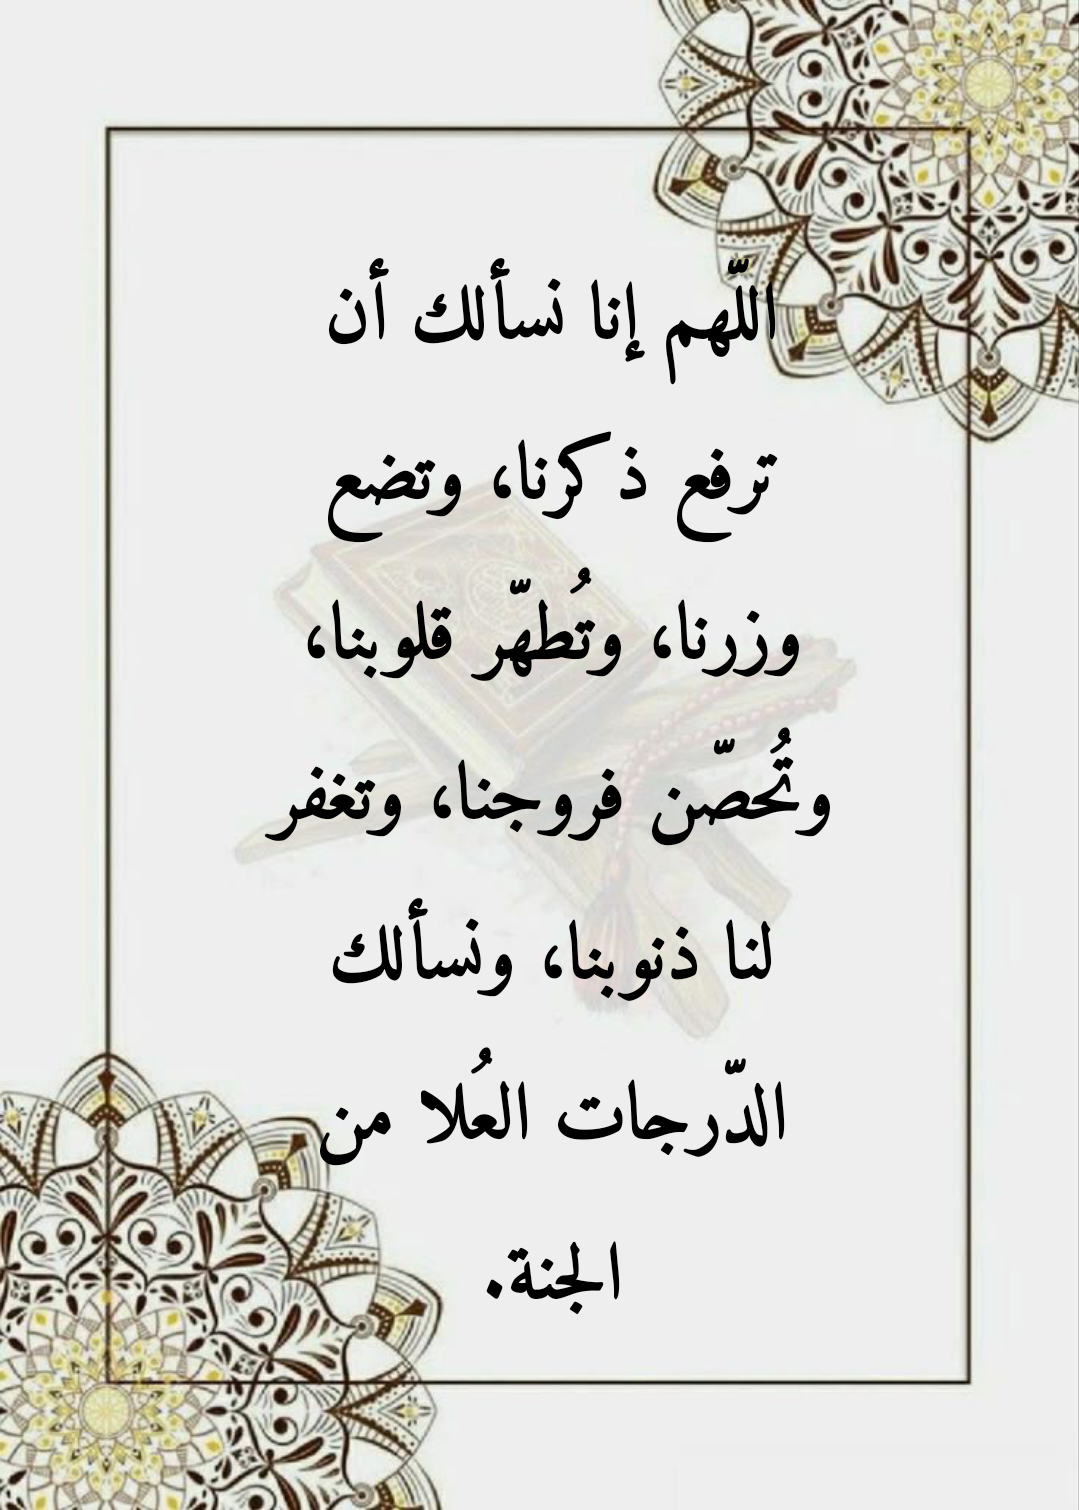 اللّهم إنا نسألك أن
ترفع ذكرنا، وتضع
وزرنا، وتُطهّر قلوبنا،
وتُحصّن فروجنا، وتغفر
لنا ذنوبنا، ونسألك
الدّرجات العُلا من
الجنة.